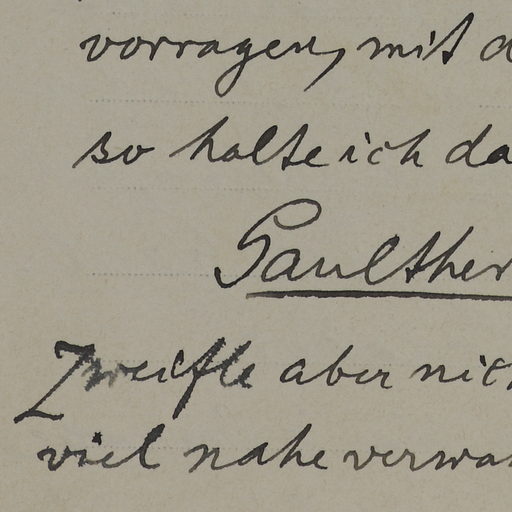 vorragen, mit d
so halte ich da
Gaulther
Zweifle aber nich
viel nahe verwan